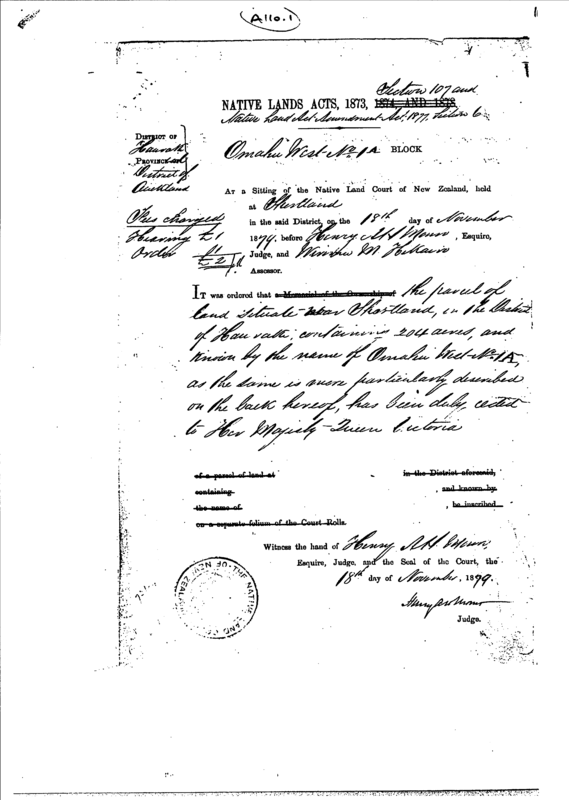 A110.1
Section 107 and
NATIVE LANDS ACTS, 1873, 1874, AND 1878
Native Land Act Amendment Act 1877, Section 6
DISTRICT OF
Hauraki
PROVINCIAL
District of
Auckland
Omahu West No 1A BLOCK
AT a Sitting of the Native Land Court of New Zealand, held
at Shortland
in the said District, on the 18th day of November
1879, before Henry A H Monro, Esquire,
Judge, and
Assessor.
Fees charged
Hearing £1
Order £1
£2
IT was ordered that a Memorial of the Ownership of the parcel of
land situate near Shortland, in the District
of Hauraki, containing 204 acres, and
known by the name of Omahu West No 1A,
as the same is more particularly described
on the back hereof, has been duly ceded
to Her Majesty Queen Victoria
of a parcel of land at in the District aforesaid,
containing , and known by
the name of , be inscribed
on a separate folium of the Court Rolls.
Witness the hand of Henry A H Monro,
Esquire, Judge, and the Seal of the Court, the
18th day of November, 1879.
Henry A H Monro
Judge.
THE NATIVE LAND OF NEW ZEALAND